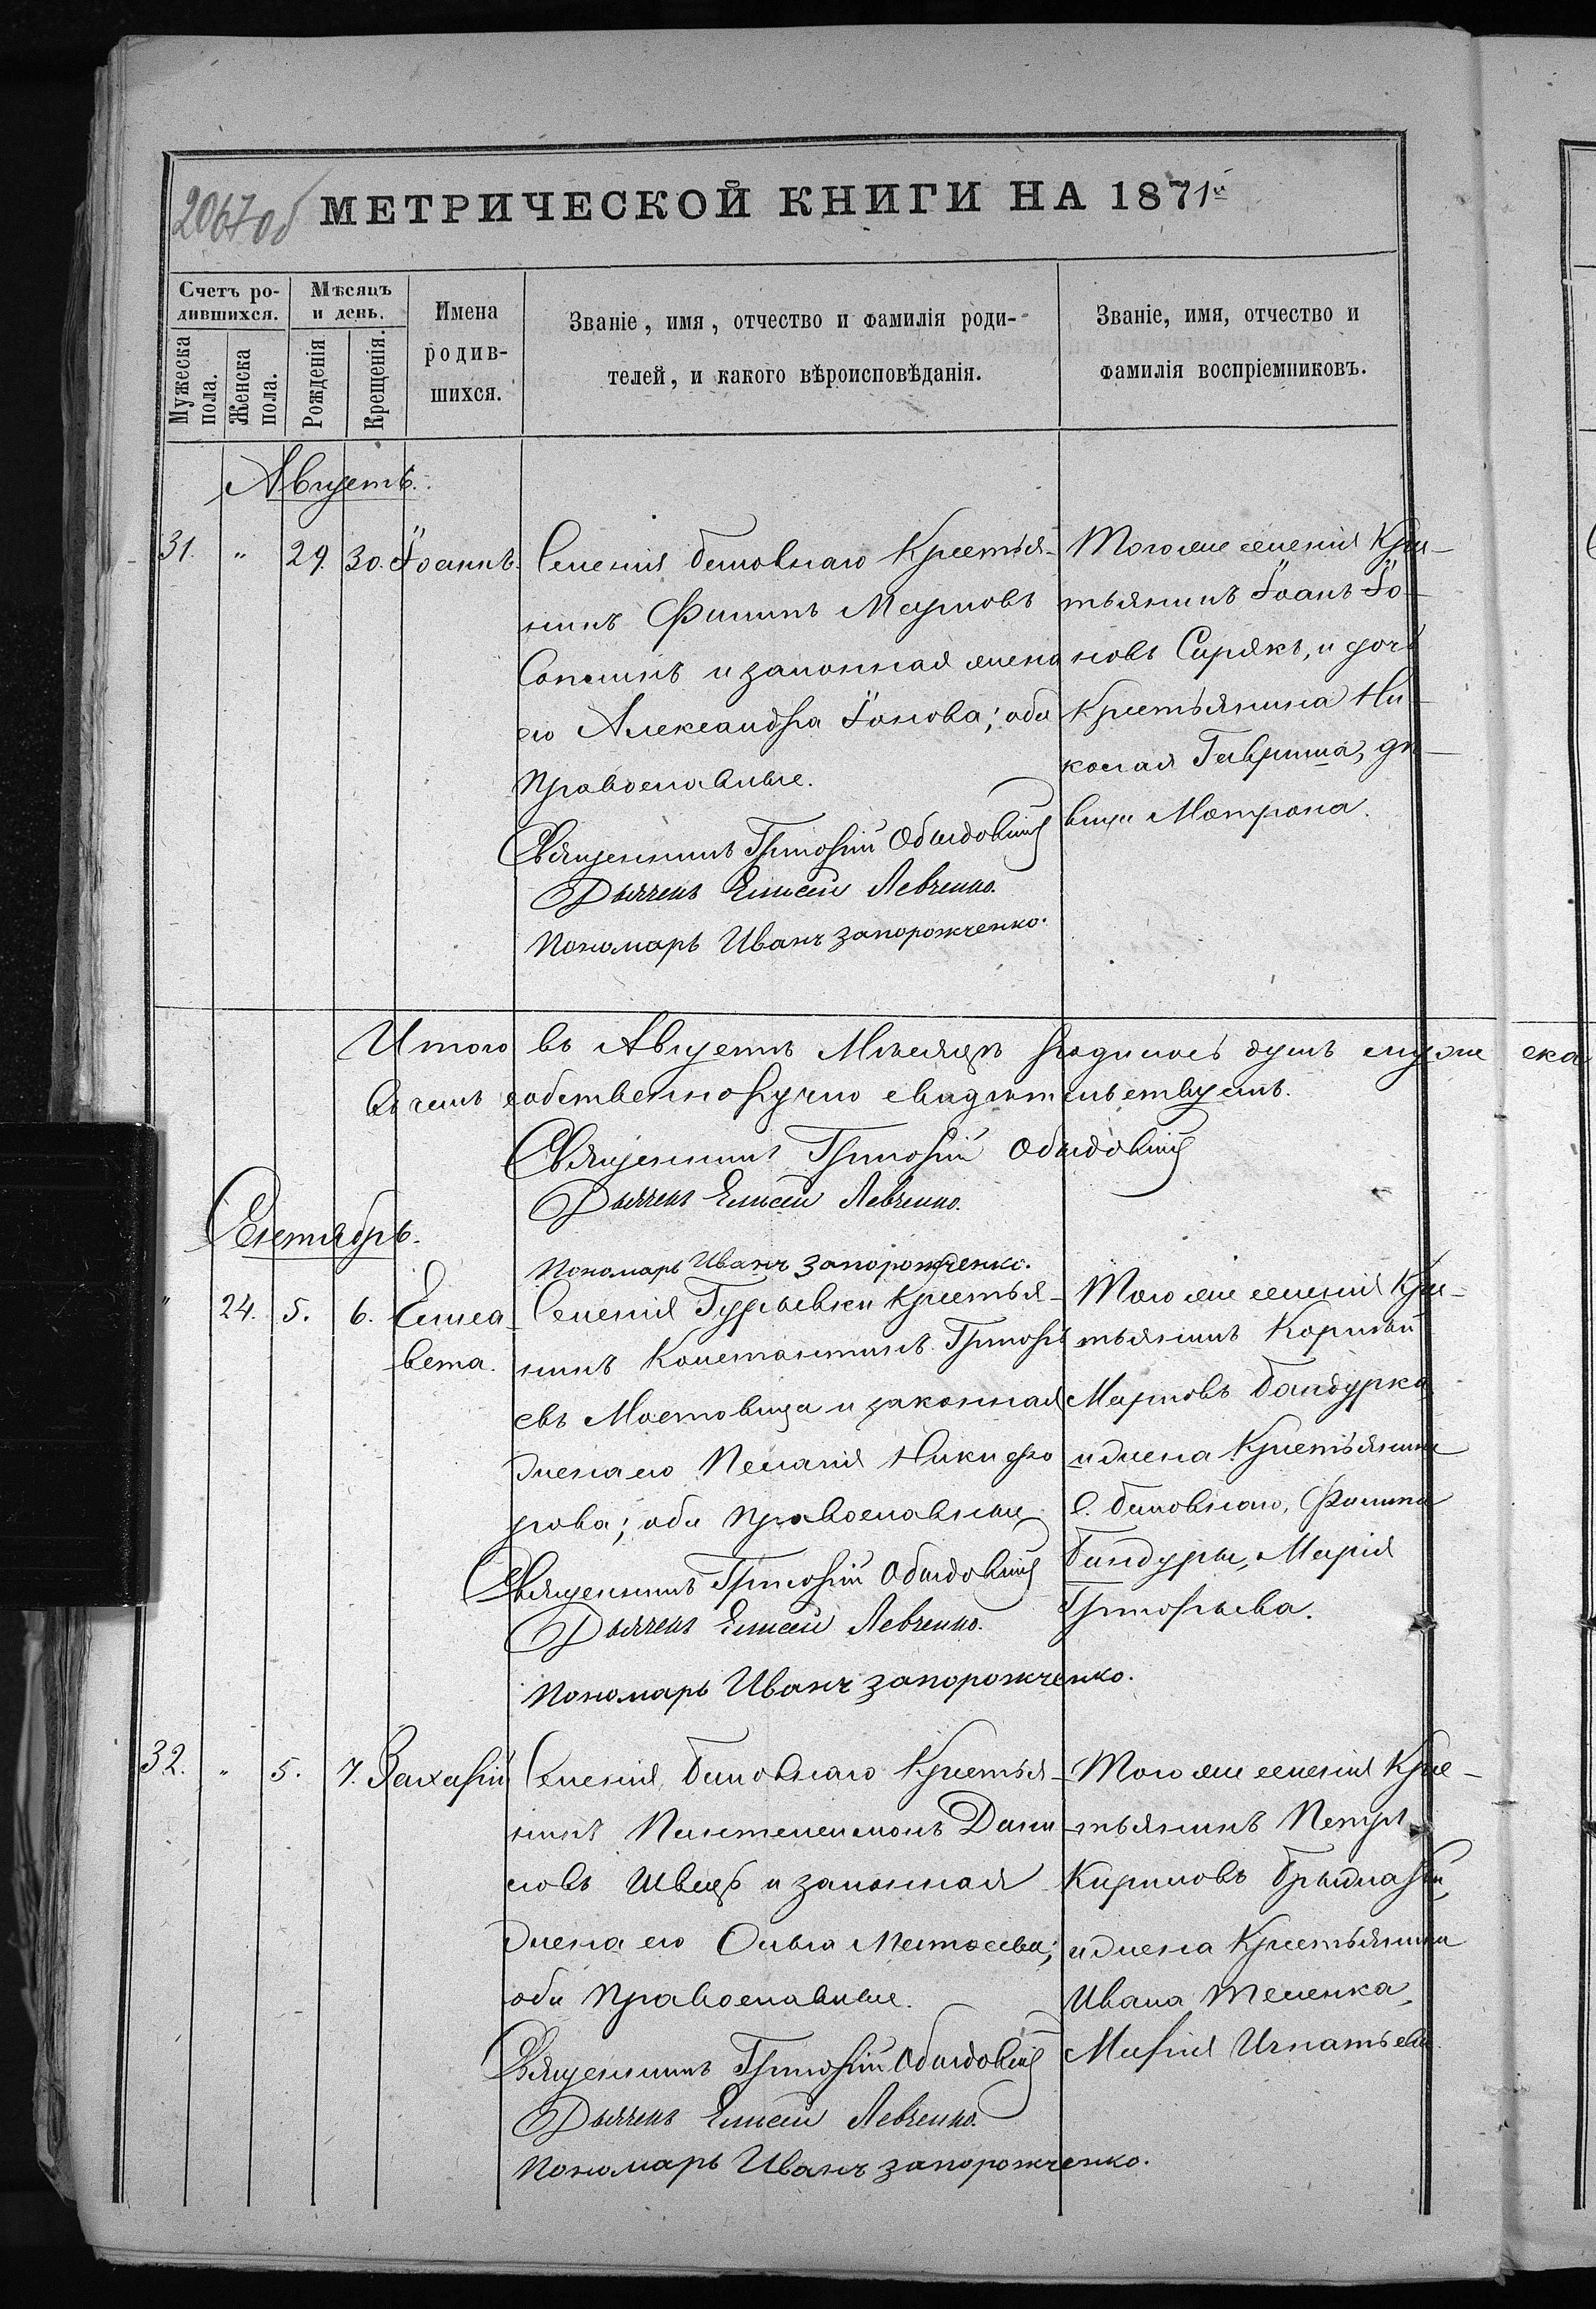 2067об
МЕТРИЧЕСКОЙ КНИГИ НА 1871й
Счетъ ро-
дившихся.
Мѣсяцъ
и день.
Мужеска
пола.
Женска
пола.
Рожденія
Крещенія.
Имена
родив-
шихся.
Званіе, имя, отчество и фамилія роди-
телей, и какого вѣроисповѣданія.
Званіе, имя, отчество и
фамилія воспріемниковъ.
Августъ.
31. " 29. 30. Іоаннъ.
Селенія Биловлаго Крестья-
нинъ Филипъ Марковъ
и законная жена
его Александра Іонова; оба
православные.
Священникъ Григорій Обыдовскій
Дьячекъ Елисей Левченко.
Пономарь Иванъ Запорожченко.
Того же селенія Кре-
стьянинъ Іоанъ Іо-
новъ Сирякъ, и дочь
Крестьянина Ни-
колая Гавриша, дѣ-
вица Матрона.
Итого въ Августѣ Мѣсяцѣ родилось душъ муже ска
въ чемъ собственноручно свидѣтельствуемъ.
Священникъ Григорій Обыдовскій
Дьячекъ Елисей Левченко.
Пономарь Иванъ Запорожченко.
Сентябрь.
" 24. 5. 6. Елиса-
вета.
Селенія Гурьевки Крестья-
нинъ Константинъ Григорь
евъ Мостовица и законная
жена его Пелагія Никифо
рова; оба православные
Священникъ Григорій Обыдовскій
Дьячекъ Елисей Левченко.
Пономарь Иванъ Запорожченко.
Того же селенія Кре-
стьянинъ Корнѣй
Марковъ Бандурка
и жена Крестьянина
с. Биловлаго, Филипа
Бандуры, Марія
Григорьева.
32. " 5. 7. Захарій
Селенія Биловлаго Крестья-
нинъ Пантелеимонъ Дани
ловъ Швецъ и законная
жена его Ольга Матѳеева;
оба православные.
Священникъ Григорій Обыдовскій
Дьячекъ Елисей Левченко.
Пономарь Иванъ Запорожченко.
Того же селенія Кре-
стьянинъ Петръ
Кириловъ
и жена Крестьянина
Ивана Теленка,
Марія Игнатьева